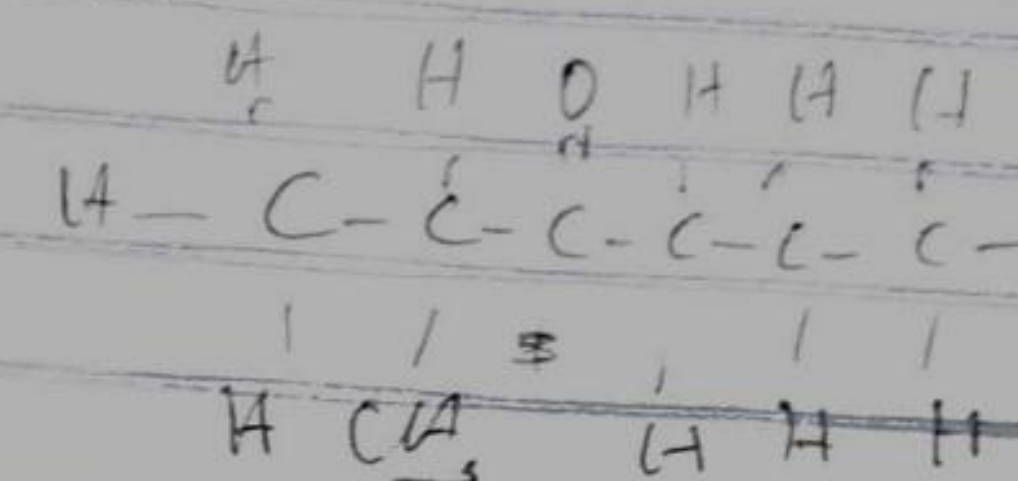 H H O H H H
H — C - C - C - C - C - C -
H CH3 H H H